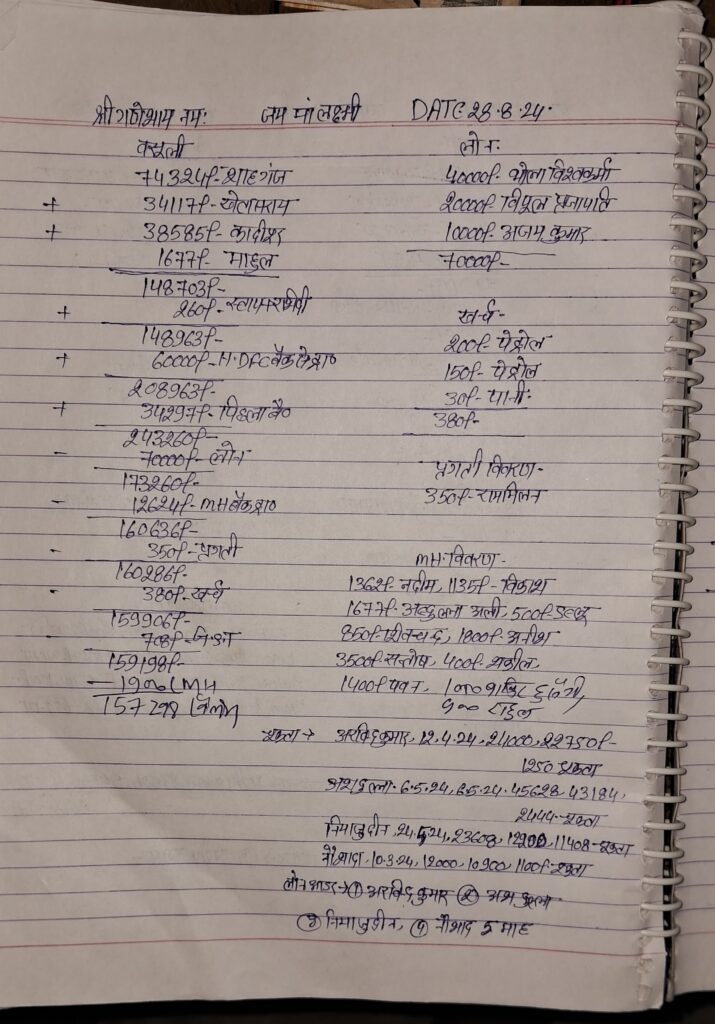 श्री गणेशाय नमः जय मां लक्ष्मी DATE 28.8.24.
वसूली
74324/- शाहगंज
+ 34117/- खेतासराय
+ 38585/-
1677/- माहुल
148703/-
+ 260/-
148963/-
+ 60000/- H.DFC बैंक से प्रा०
208963/-
+ 34297/- पिछला बै०
243260/-
- 70000/- लोन
173260/-
- 12624/- MH बैंक प्रा०
160636/-
- 350/- प्रगती
160286/-
- 380/- खर्च
159906/-
- 708/-
159198/-
- 1900 MH
157298 बैलेंस
लोन.
40000/- भोला विश्वकर्मा
20000/- विपूल प्रजापति
10000/- अजय कुमार
70000/-
खर्च-
200/- पेट्रोल
150/- पेट्रोल
30/- पानी.
380/-
प्रगती विवरण-
350/- राममिलन
MH. विवरण-
1362/- नदीम, 1135/- विकाश
1677/- अब्दुल्ला अली, 500/-
850/- शिवचंद, 1800/- अनीश
3500/- सन्तोष, 400/-
1400/- पवन, 1000
900 राहुल
छूता → अरविंद कुमार, 12.4.24, 24000, 22750/-
1250 छूता
6.5.24, 8.5.24. 45628, 43184,
2444- छूता
नियाजुद्दीन, 24.5.24, 23608, 12200, 11408- छूता
नौशाद, 10.3.24, 12000, 10900, 1100/- छूता
→ ① अरविंद कुमार ②
③ नियाजुद्दीन, ④ नौशाद 5 माह